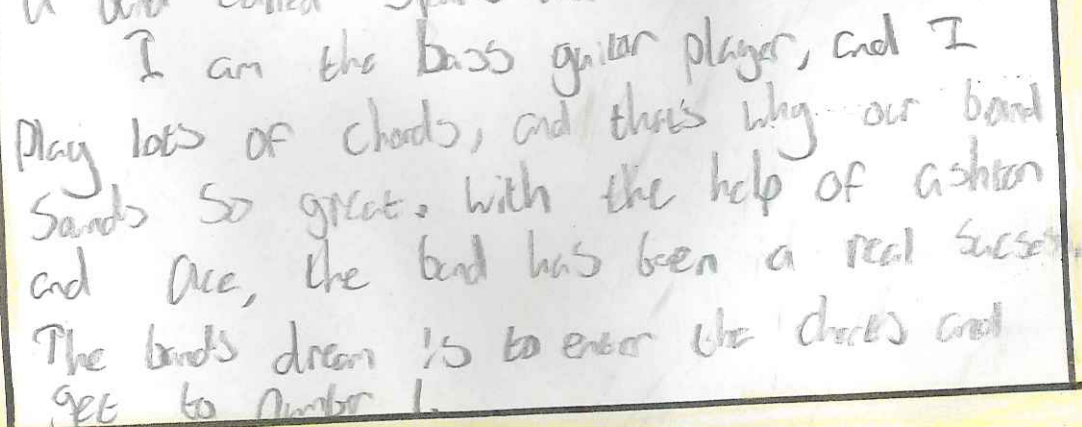 a band called
I am the bass guitar player, and I
Play lots of chords, and thats why our band
Sands so great. With the help of ashton
and ace, the band has been a real sucses.
The bands dream is to enter the charts and
get to number 1.